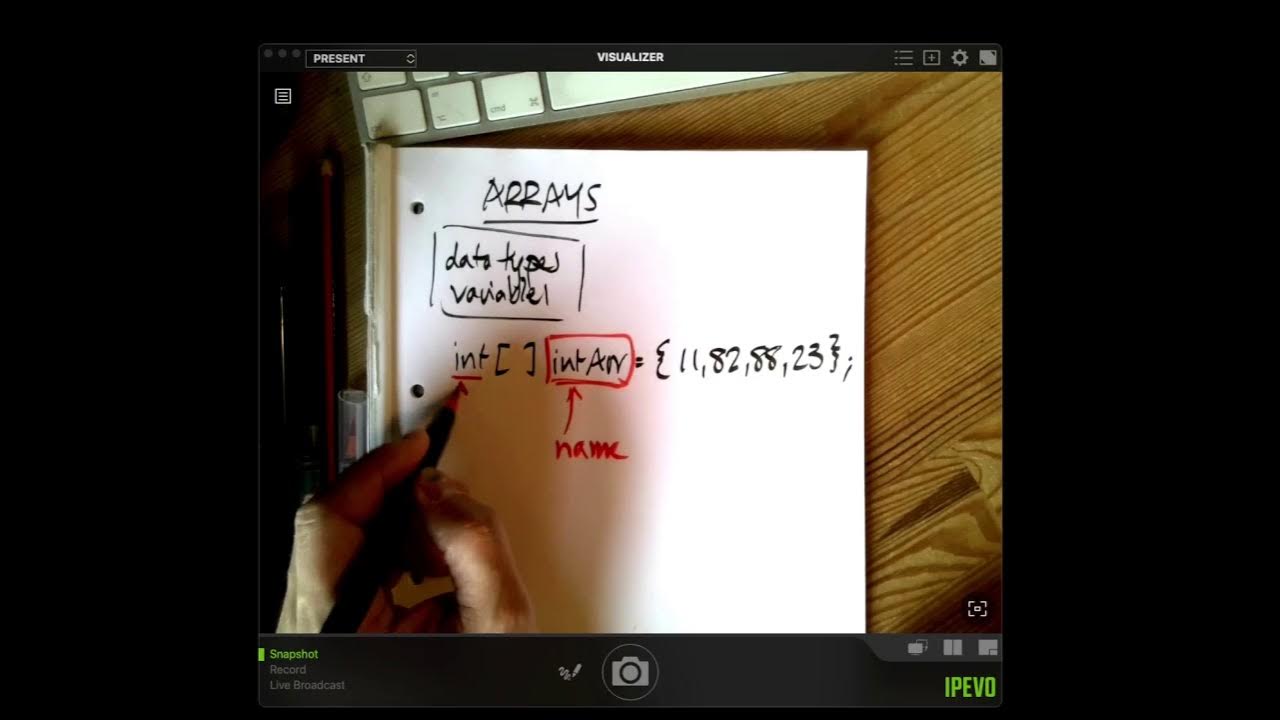 PRESENT
VISUALIZER
cmd
ARRAYS
data types
variables
int[ ] intArr = {11,82,88,23};
name
Snapshot
Record
Live Broadcast
IPEVO